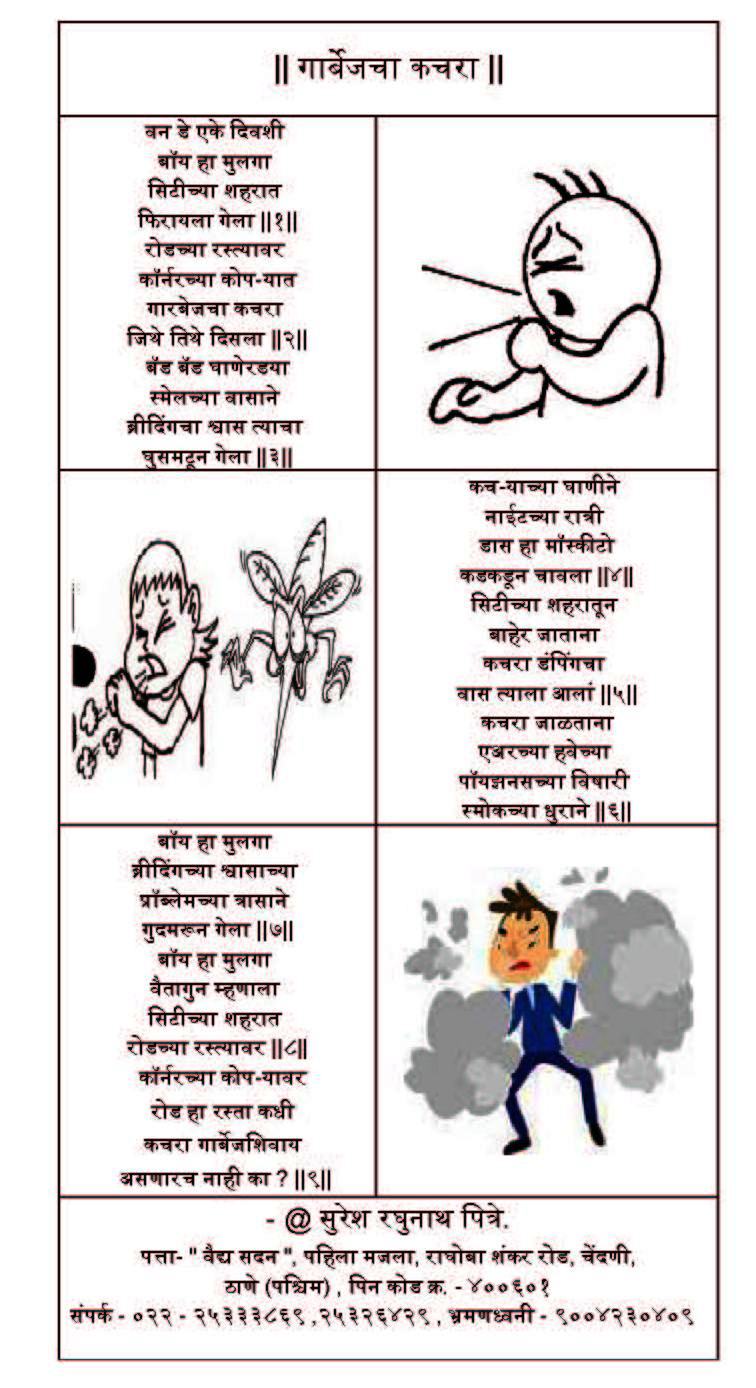 || गार्बेजचा कचरा ||
वन डे एके दिवशी
बॉय हा मुलगा
सिटीच्या शहरात
फिरायला गेला ||१||
रोडच्या रस्त्यावर
कॉर्नरच्या कोप-यात
गारबेजचा कचरा
जिथे तिथे दिसला ||२||
बॅड बॅड घाणेरडया
स्मेलच्या वासाने
ब्रीदिंगचा श्वास त्याचा
घुसमटून गेला ||३||
कच-याच्या घाणीने
नाईटच्या रात्री
डास हा मॉस्कीटो
कडकडून चावला ||४||
सिटीच्या शहरातून
बाहेर जाताना
कचरा डंपिंगचा
वास त्याला आलां ||५||
कचरा जाळताना
एअरच्या हवेच्या
पॉयझनसच्या विषारी
स्मोकच्या धुराने ||६||
बॉय हा मुलगा
ब्रीदिंगच्या श्वासाच्या
प्रॉब्लेमच्या त्रासाने
गुदमरून गेला ||७||
बॉय हा मुलगा
वैतागुन म्हणाला
सिटीच्या शहरात
रोडच्या रस्त्यावर ||८||
कॉर्नरच्या कोप-यावर
रोड हा रस्ता कधी
कचरा गार्बेजशिवाय
असणारच नाही का ? ||९||
- @ सुरेश रघुनाथ पित्रे.
पत्ता- " वैद्य सदन ", पहिला मजला, राघोबा शंकर रोड, चेंदणी,
ठाणे (पश्चिम) , पिन कोड क्र. - ४००६०१
संपर्क - ०२२ - २५३३३८६९ ,२५३२६४२९ , भ्रमणध्वनी - ९००४२३०४०९